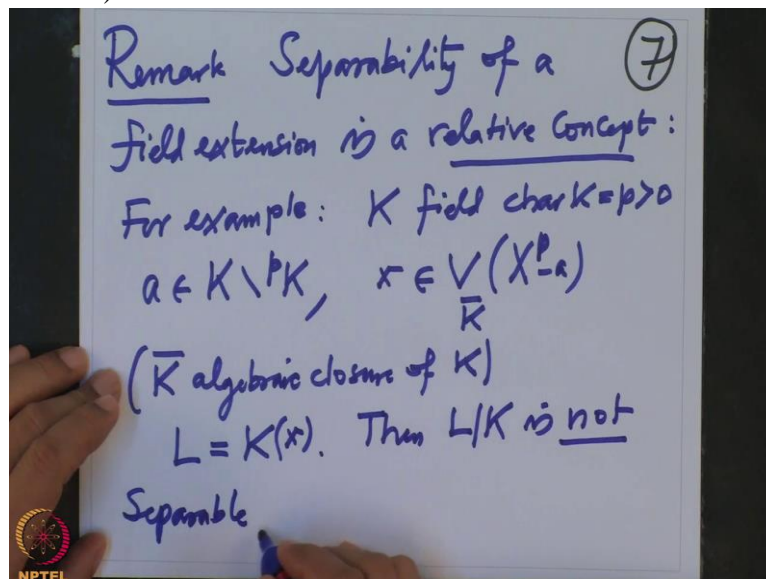 Remark Separability of a 7
field extension is a relative concept:
For example: K field char K = p > 0
a ∈ K \ ᵖK, x ∈ V_K̄(Xᵖ-a)
(K̄ algebraic closure of K)
L = K(x). Then L/K is not
Separable
NPTEL